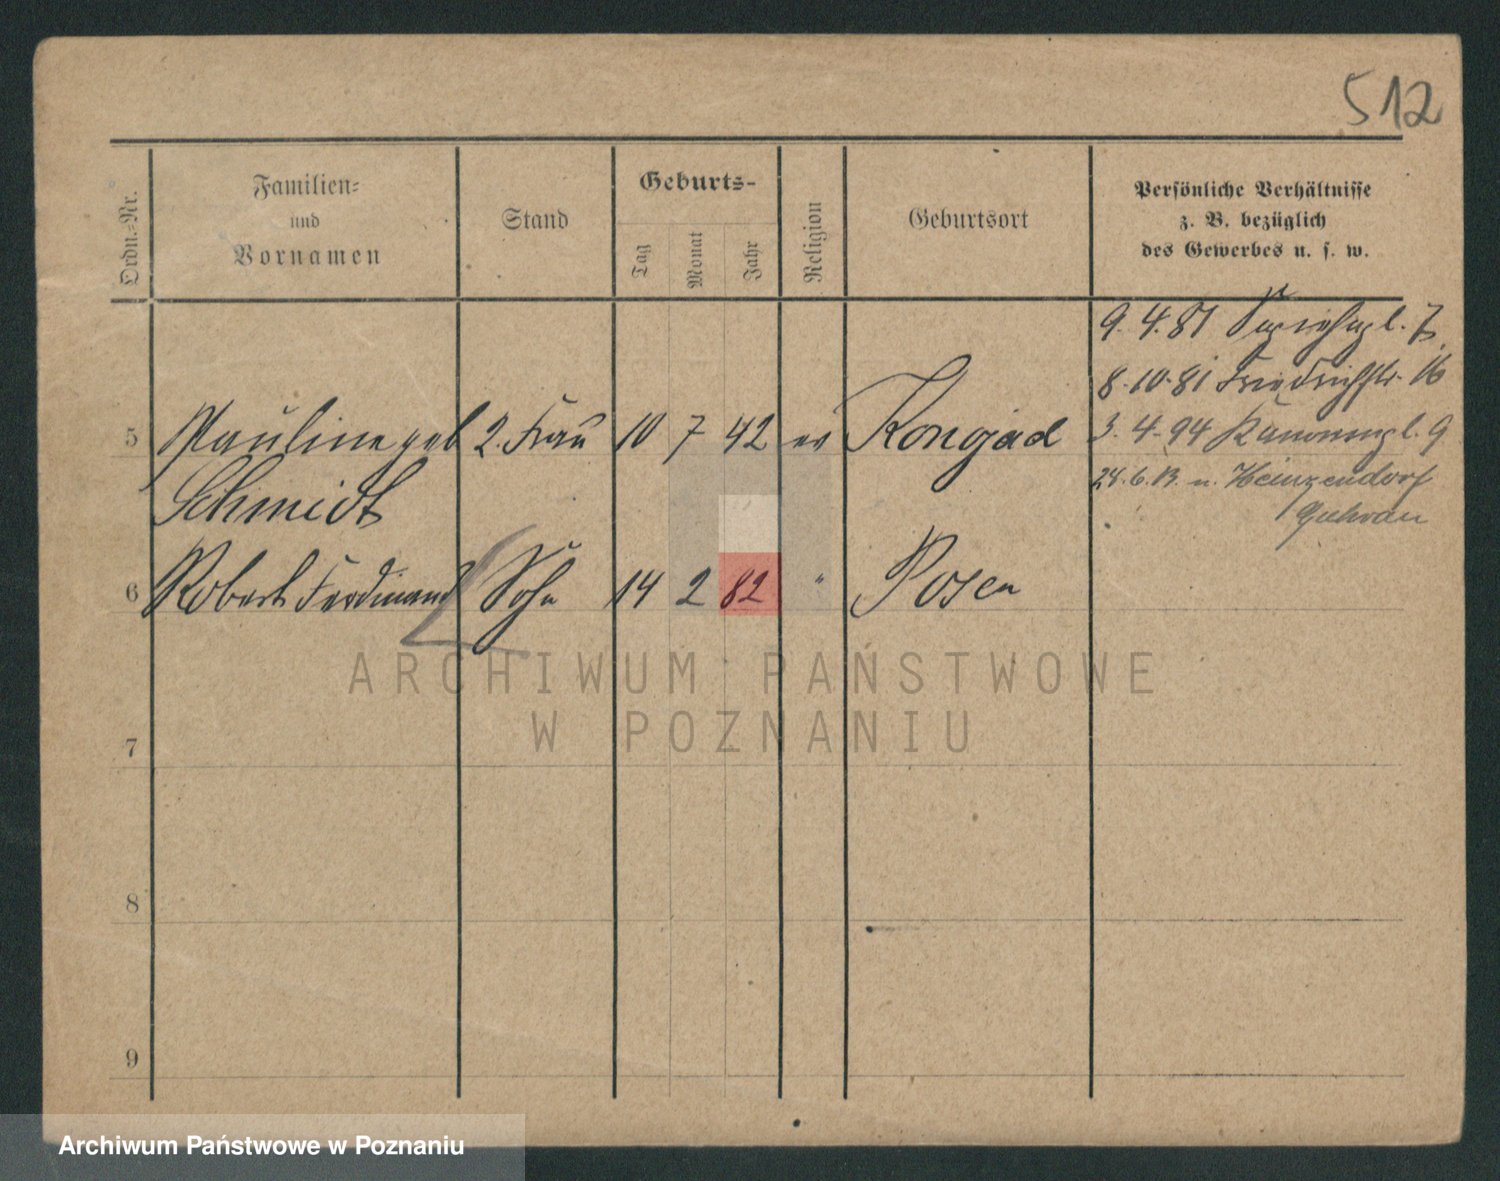 512
Ordn.-Nr.
Familien-
und
Vornamen
Stand
Geburts-
Tag
Monat
Jahr
Religion
Geburtsort
Persönliche Verhältnisse
z. B. bezüglich
des Gewerbes u. s. w.
9. 4. 81 7
8. 10. 81 Friedrichstr. 16
5 Pauline geb 2. Frau 10 7 42 ev Konojad
Schmidt
3. 4. 94 Kanonenpl. 9
24. 6. 13. n. Heinzendorf
Guhrau
6 Robert Ferdinand Sohn 14 2 82 " Posen
7
8
9
ARCHIWUM PAŃSTWOWE
W POZNANIU
Archiwum Państwowe w Poznaniu